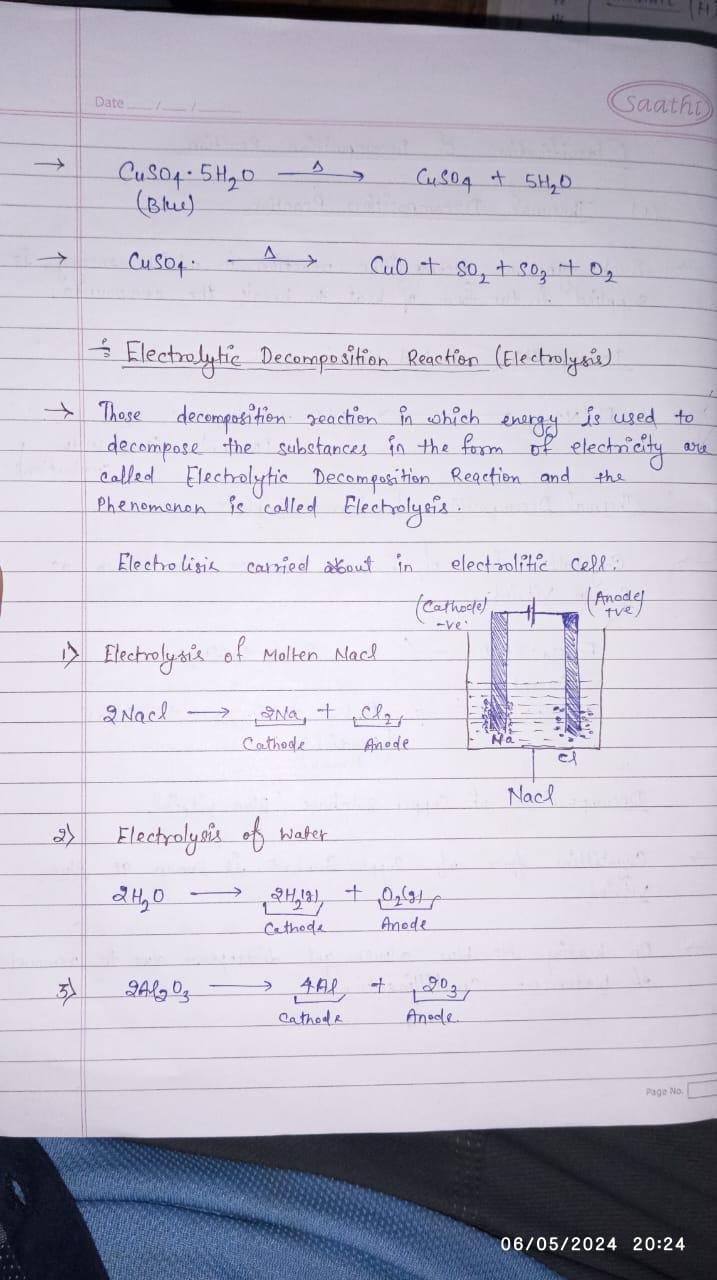 Date __/__/__
Saathi
→ CuSO4·5H₂O —Δ→ CuSO4 + 5H₂O
(Blue)
→ CuSO4· —Δ→ CuO + SO₂ + SO₃ + O₂
÷ Electrolytic Decomposition Reaction (Electrolysis)
→ Those decomposition reaction in which energy is used to
decompose the substances in the form of electricity are
called Electrolytic Decomposition Reaction and the
Phenomenon is called Electrolysis.
Electrolisis carried about in electrolitic cell:
(Cathode) -ve
(Anode) +ve
1) Electrolysis of Molten Nacl
2Nacl → 2Na + Cl₂
Cathode Anode
Na
Cl
Nacl
2) Electrolysis of Water
2H₂O → 2H₂(g) + O₂(g)
Cathode Anode
3) 2Al₂O₃ → 4Al + 2O₃
Cathode Anode.
Page No.
06/05/2024 20:24